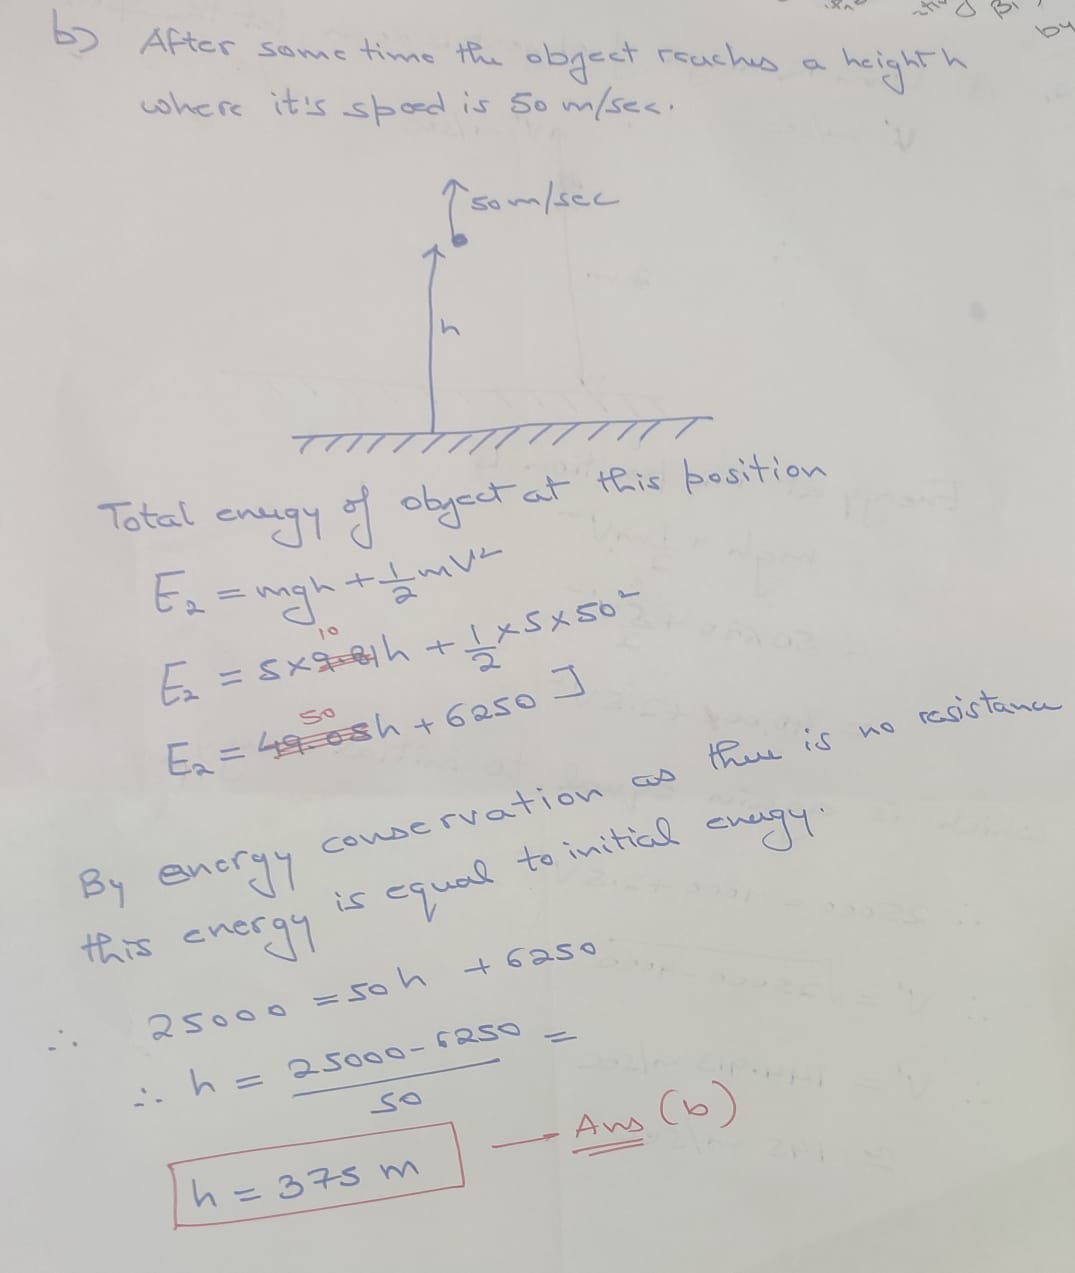 b) After some time the object reaches a height h
where it's speed is 50 m/sec.
50 m/sec
h
Total energy of object at this position
E₂ = mgh + 1/2 mV²
10
E₂ = 5×9.81h + 1/2 ×5×50²
50
E₂ = 49.05h + 6250 J
By energy conservation as there is no resistance
this energy is equal to initial energy.
∴ 25000 = 50h + 6250
∴ h = 25000-6250 / 50 =
h = 375 m → Ans (b)